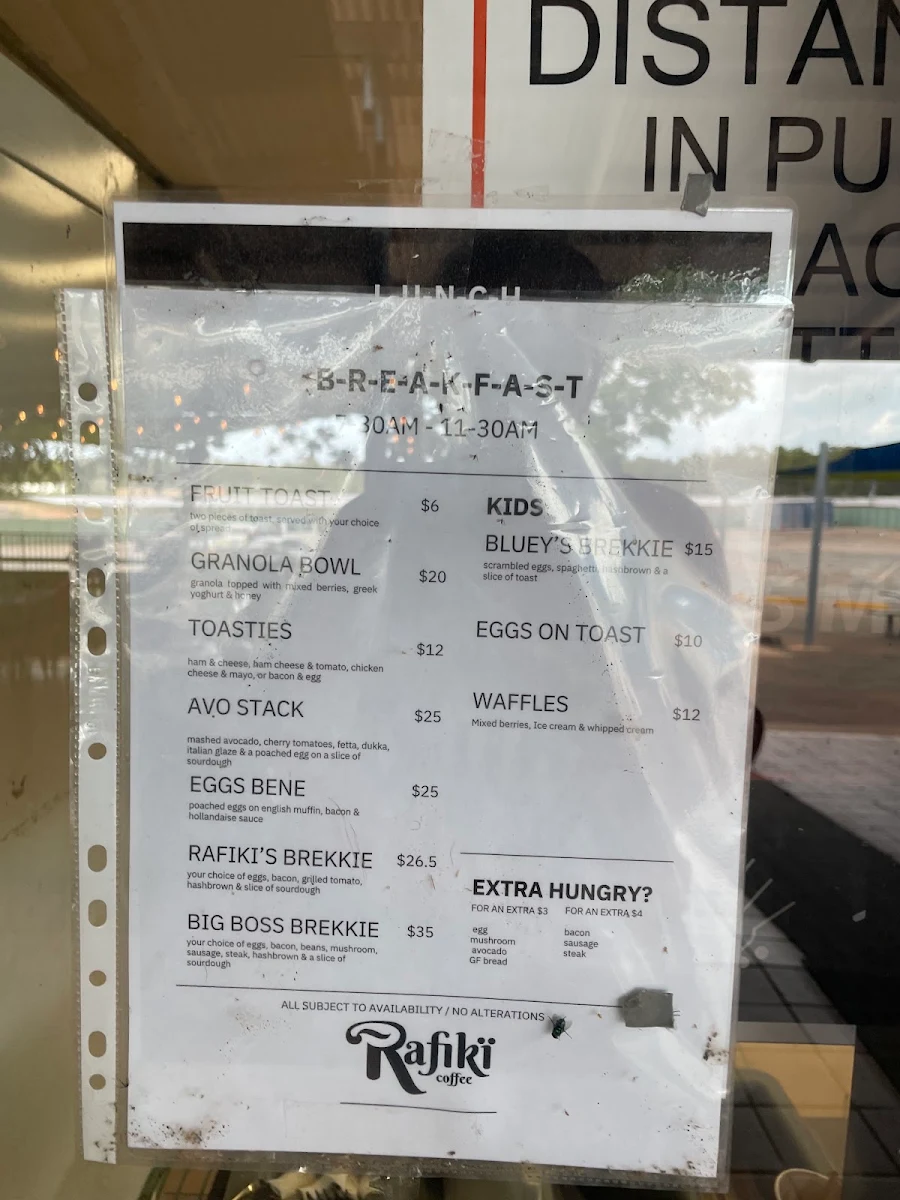 DISTAN
IN PU
AC
TT
LUNCH
B-R-E-A-K-F-A-S-T
7-30AM - 11-30AM
FRUIT TOAST $6
two pieces of toast, served with your choice
of spread
GRANOLA BOWL $20
granola topped with mixed berries, greek
yoghurt & honey
TOASTIES $12
ham & cheese, ham cheese & tomato, chicken
cheese & mayo, or bacon & egg
AVO STACK $25
mashed avocado, cherry tomatoes, fetta, dukka,
italian glaze & a poached egg on a slice of
sourdough
EGGS BENE $25
poached eggs on english muffin, bacon &
hollandaise sauce
RAFIKI'S BREKKIE $26.5
your choice of eggs, bacon, grilled tomato,
hashbrown & slice of sourdough
BIG BOSS BREKKIE $35
your choice of eggs, bacon, beans, mushroom,
sausage, steak, hashbrown & a slice of
sourdough
KIDS
BLUEY'S BREKKIE $15
scrambled eggs, spaghetti, hashbrown & a
slice of toast
EGGS ON TOAST $10
WAFFLES $12
Mixed berries, Ice cream & whipped cream
EXTRA HUNGRY?
FOR AN EXTRA $3
egg
mushroom
avocado
GF bread
FOR AN EXTRA $4
bacon
sausage
steak
ALL SUBJECT TO AVAILABILITY / NO ALTERATIONS
Rafikï
coffee